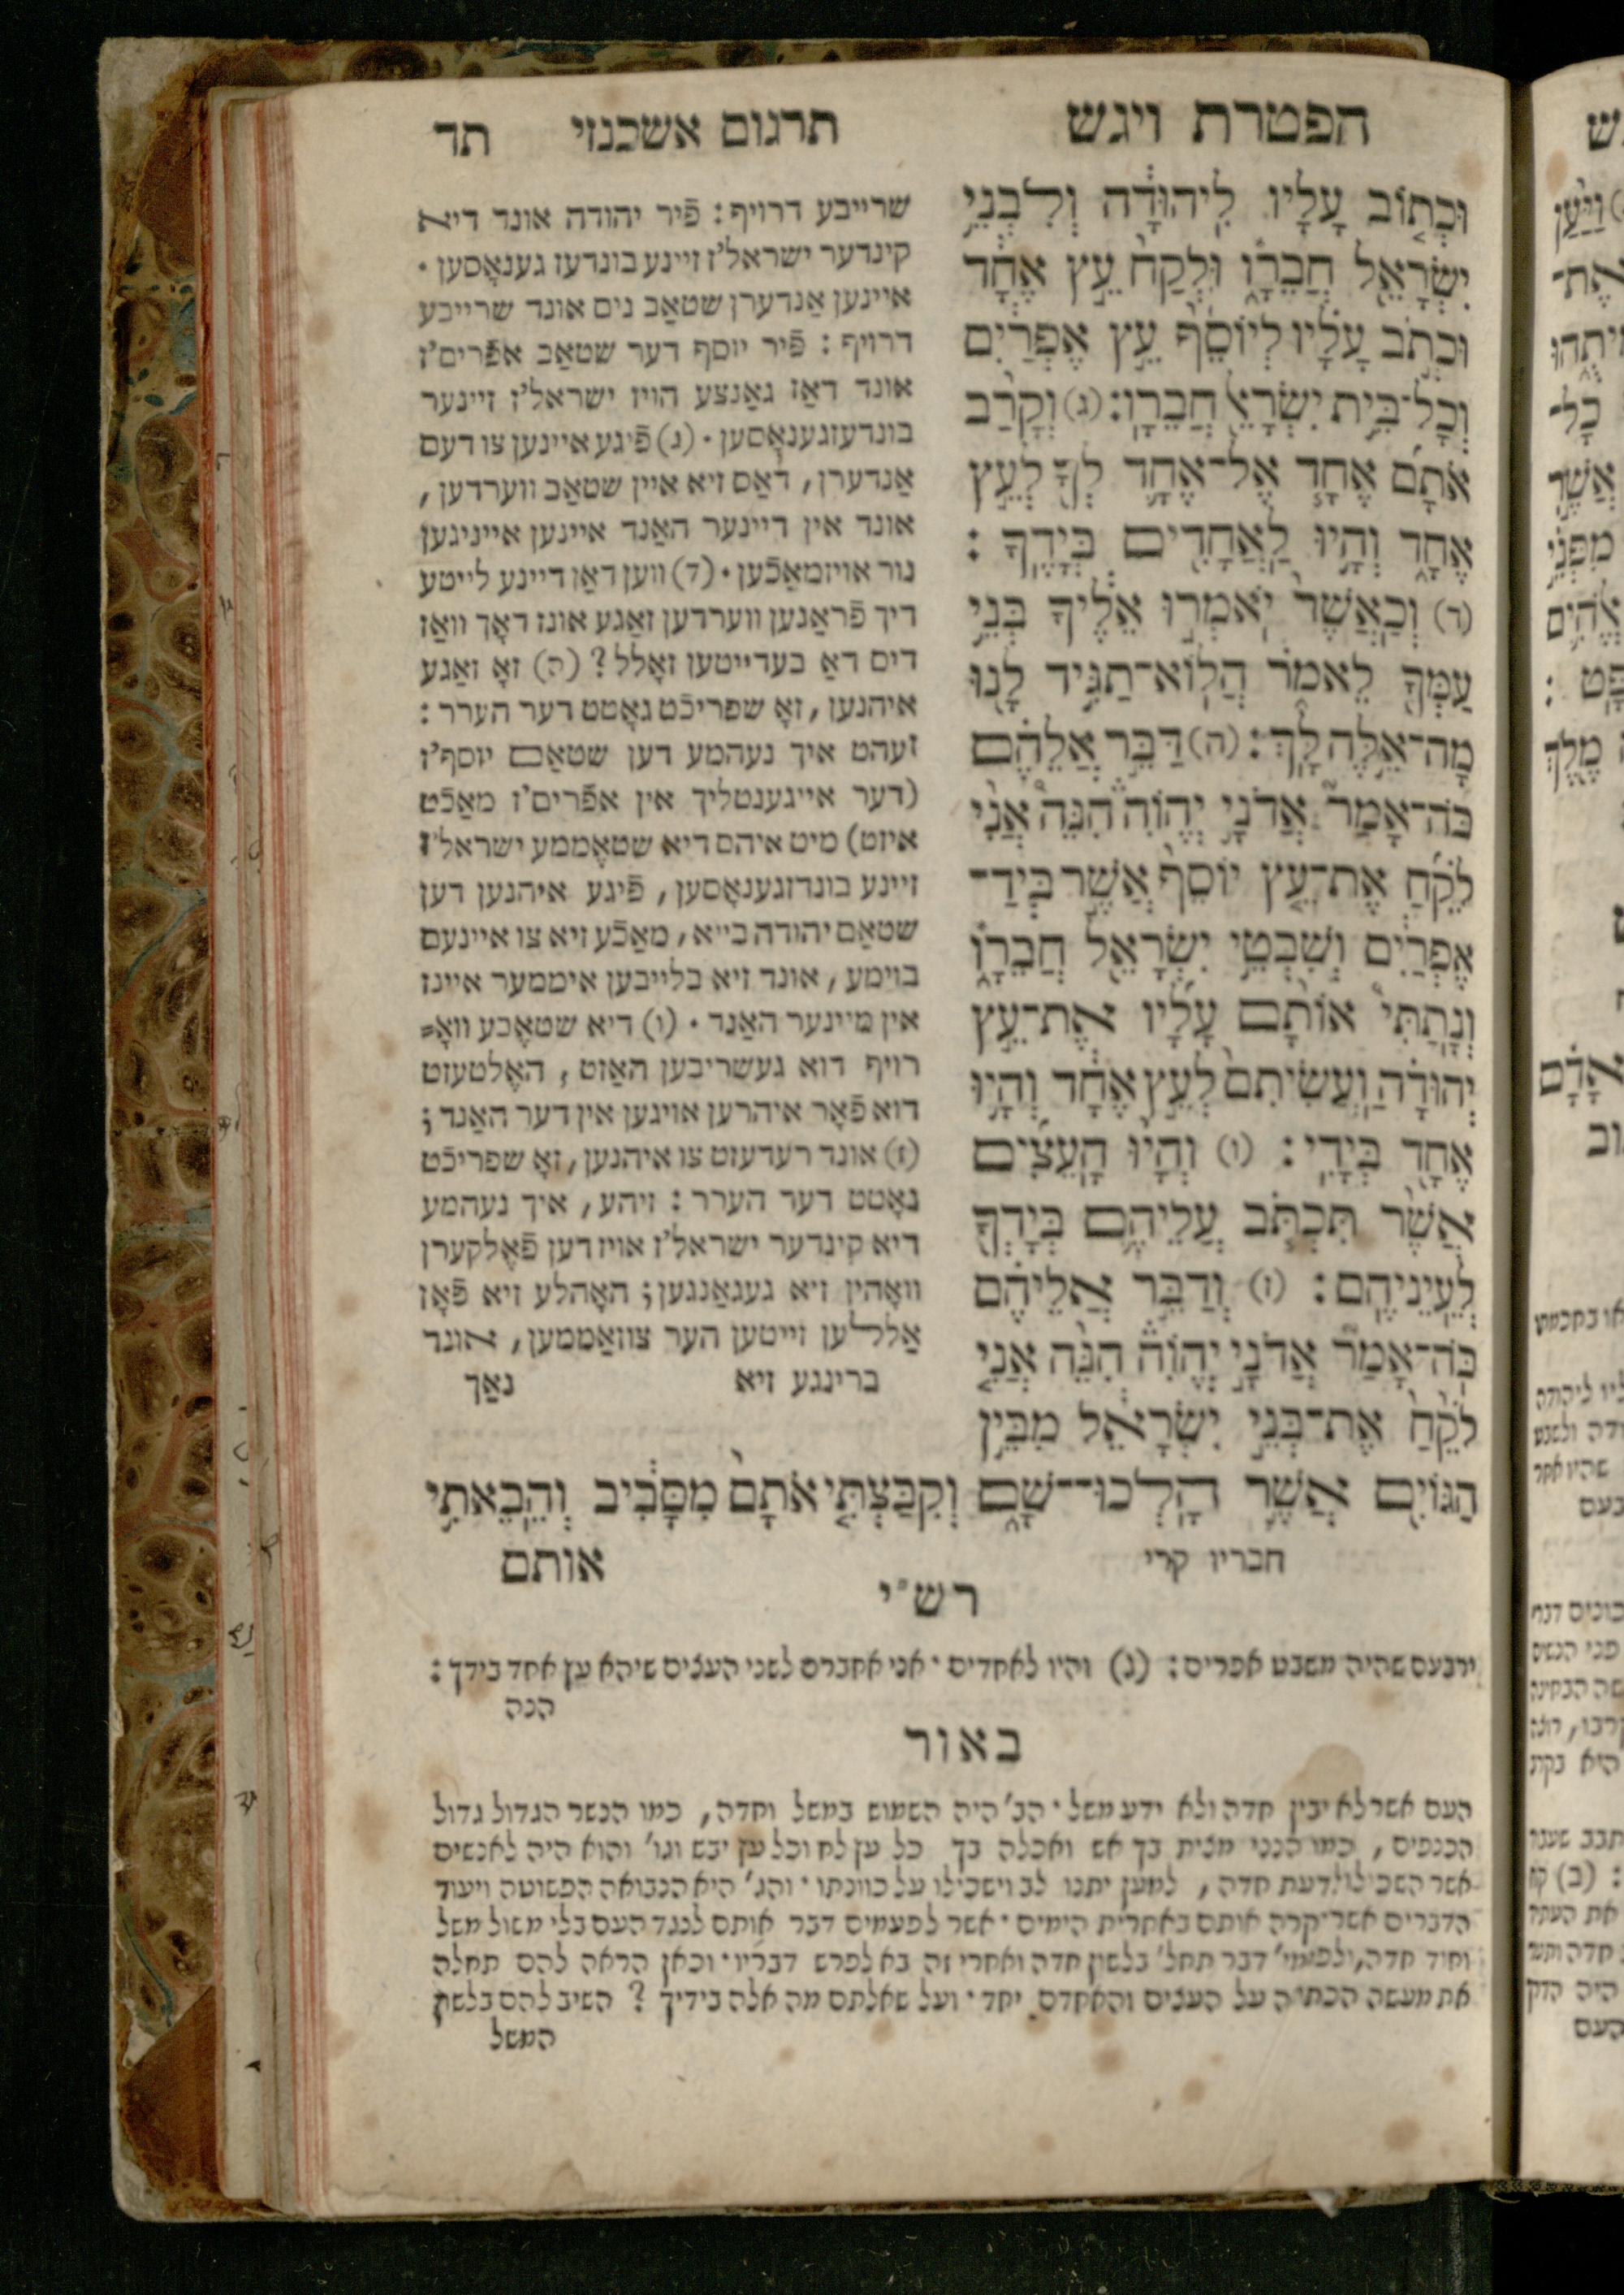 הפטרת ויגש
תרגום אשכנזי
תד
וּכְתוֹב עָלָיו לִיהוּדָה וְלִבְנֵי
יִשְׂרָאֵל חֲבֵרָו וּלְקַח עֵץ אֶחָד
וּכְתֹב עָלָיו לְיוֹסֵף עֵץ אֶפְרַיִם
וְכָל־בֵּית יִשְׂרָאֵל חֲבֵרָו: (ג) וְקָרַב
אֹתָם אֶחָד אֶל־אֶחָד לְךָ לְעֵץ
אֶחָד וְהָיוּ לַאֲחָדִים בְּיָדֶךָ:
(ד) וְכַאֲשֶׁר יֹאמְרוּ אֵלֶיךָ בְּנֵי
עַמְּךָ לֵאמֹר הֲלוֹא־תַגִּיד לָנוּ
מָה־אֵלֶּה לָּךְ: (ה) דַּבֵּר אֲלֵהֶם
כֹּה־אָמַר אֲדֹנָי יְהוִֹה הִנֵּה אֲנִי
לֹקֵחַ אֶת־עֵץ יוֹסֵף אֲשֶׁר בְּיַד־
אֶפְרַיִם וְשִׁבְטֵי יִשְׂרָאֵל חֲבֵרָו
וְנָתַתִּי אוֹתָם עָלָיו אֶת־עֵץ
יְהוּדָה וַעֲשִׂיתִם לְעֵץ אֶחָד וְהָיוּ
אֶחָד בְּיָדִי: (ו) וְהָיוּ הָעֵצִים
אֲשֶׁר תִּכְתֹּב עֲלֵיהֶם בְּיָדְךָ
לְעֵינֵיהֶם: (ז) וְדַבֵּר אֲלֵיהֶם
כֹּה־אָמַר אֲדֹנָי יְהוִֹה הִנֵּה אֲנִי
לֹקֵחַ אֶת־בְּנֵי יִשְׂרָאֵל מִבֵּין
הַגּוֹיִם אֲשֶׁר הָלְכוּ־שָׁם וְקִבַּצְתִּי אֹתָם מִסָּבִיב וְהֵבֵאתִי
חבריו קרי
אותם
שרייבע דרויף: פֿיר יהודה אונד דיא
קינדער ישראל'ז זיינע בונדעז גענאָסען.
איינען אַנדערן שטאַב נים אונד שרייבע
דרויף: פֿיר יוסף דער שטאַב אפֿרים'ז
אונד דאַז גאַנצע הויז ישראל'ז זיינער
בונדעזגענאָסען. (ג) פֿיגע איינען צו דעם
אַנדערן, דאַס זיא איין שטאַב ווערדען,
אונד אין דיינער האַנד איינען אייניגען
נור אויזמאַכֿען. (ד) ווען דאַן דיינע לייטע
דיך פֿראַגען ווערדען זאַגע אונז דאָך וואַז
דיס דאַ בעדייטען זאָלל? (ה) זאָ זאַגע
איהנען, זאָ שפריכֿט גאָטט דער הערר:
זעהט איך נעהמע דען שטאַם יוסף'ז
(דער אייגענטליך אין אפֿרים'ז מאַכֿט
איזט) מיט איהם דיא שטאָממע ישראל'ז
זיינע בונדזגענאָסען, פֿיגע איהנען דען
שטאַם יהודה בייא, מאַכֿע זיא צו איינעם
בוימע, אונד זיא בלייבען איממער איינז
אין מיינער האַנד. (ו) דיא שטאָבע וואָ=
רויף דוא געשריבען האַזט, האָלטעזט
דוא פֿאָר איהרען אויגען אין דער האַנד;
(ז) אונד רעדעזט צו איהנען, זאָ שפריכֿט
גאָטט דער הערר: זיהע, איך נעהמע
דיא קינדער ישראל'ז אויז דען פֿאָלקערן
וואָהין זיא געגאַנגען; האָהלע זיא פֿאָן
אַללען זייטען הער צוזאַממען, אונד
ברינגע זיא
נאַך
רש"י
ירבעם שהיה משבט אפרים: (ג) והיו לאחדים. אני אחברם לשני העצים שיהא עץ אחד בידך:
הנה
באור
העם אשר לא יבין חדה ולא ידע משל. הב' היה השמוש במשל וחדה, כמו הנשר הגדול גדול
הכנפים, כמו הנני מצית בך אש ואכלה בך כל עץ לח וכל עץ יבש וגו' והוא היה לאנשים
אשר השכילו לדעת חדה, למען יתנו לב וישכילו על כוונתו. והג' היא הנבואה הפשוטה ויעוד
הדברים אשר יקרה אותם באחרית הימים. אשר לפעמים דבר אותם לנגד העם בלי משול משל
וחוד חדה, ולפעמי' דבר תחל' בלשון חדה ואחרי זה בא לפרש דבריו. וכאן הראה להם תחלה
את מעשה הכתיבה על העצים והאחדם יחד. ועל שאלתם מה אלה בידיך? השיב להם בלשון
המשל